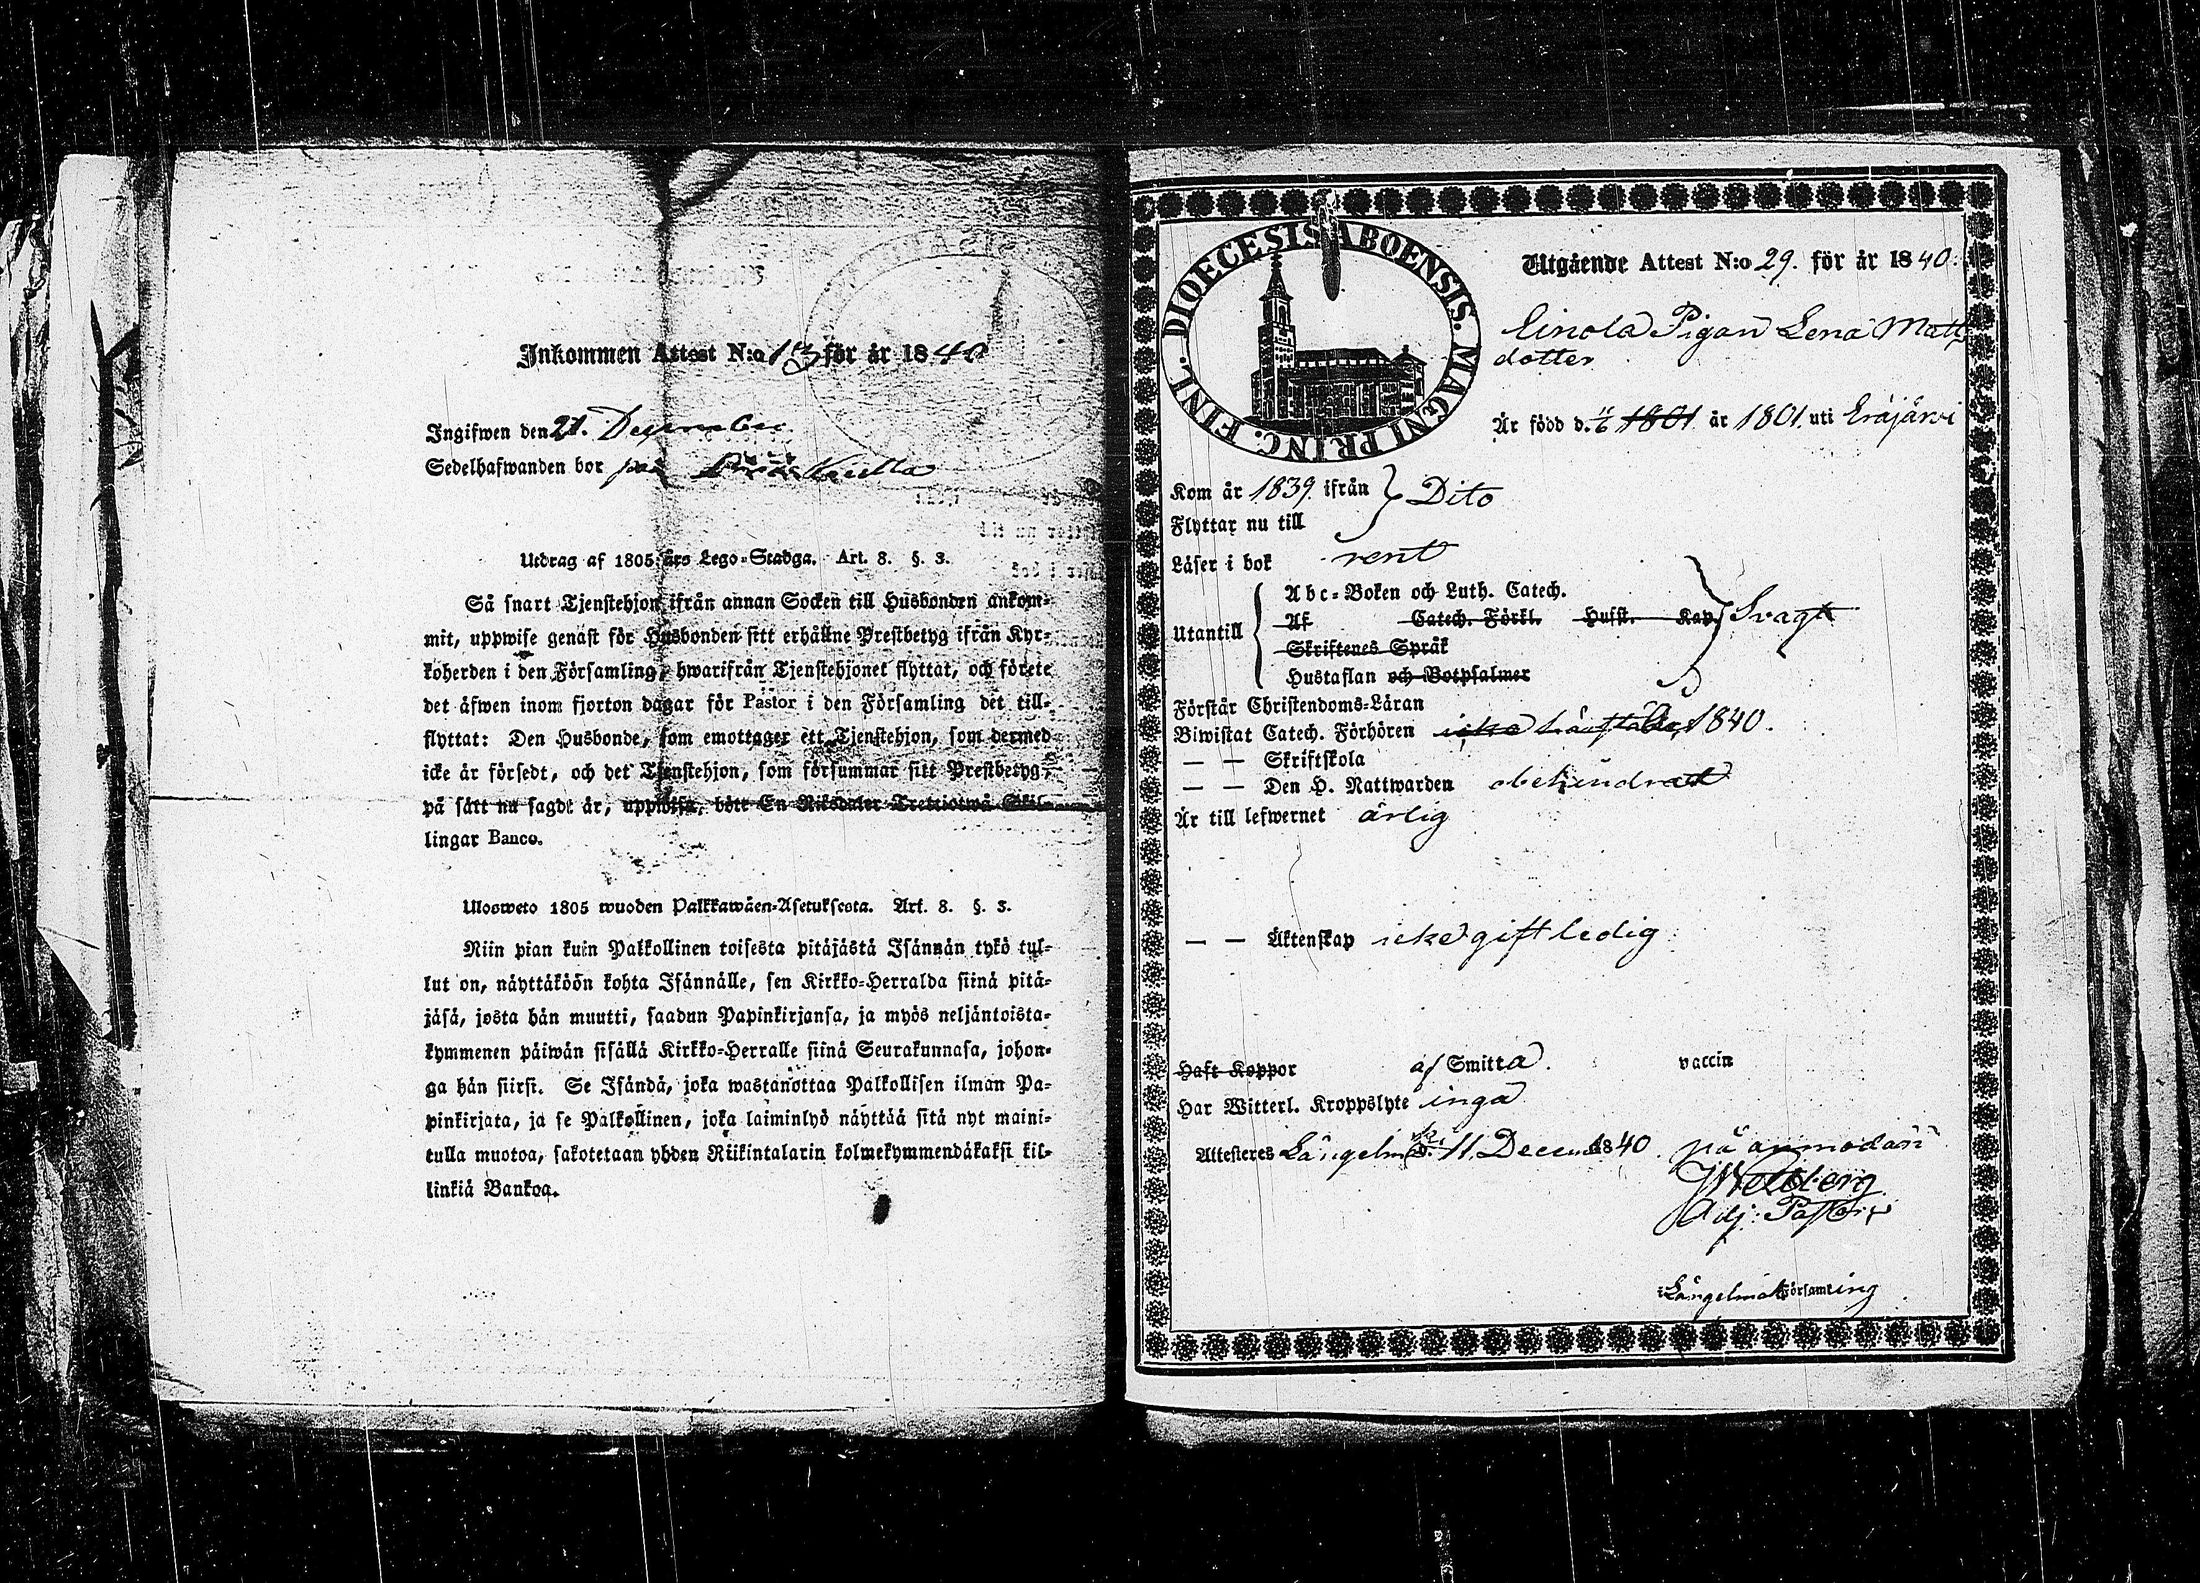 Inkommen Attest N:o 13 för år 1840
Ingifwen den 21. December
Sedelhafwanden bor på
Utdrag af 1805 års Lego-Stadga. Art. 8. §. 3.
Så snart Tjenstehjon ifrån annan Socken till Husbonden ankom-
mit, uppwise genast för Husbonden sitt erhållne Prestbetyg ifrån Kyr-
koherden i den Församling, hwarifrån Tjenstehjonet flyttat, och förete
det äfwen inom fjorton dagar för Pastor i den Församling det till-
flyttat: Den Husbonde, som emottager ett Tjenstehjon, som dermed
icke är försedt, och det Tjenstehjon, som försummar sitt Prestbetyg,
på sätt nu sagdt är, uppwisa, böte En Riksdaler Trettiotwå Skil-
lingar Banco.
Ulosweto 1805 wuoden Palkkawäen-Asetuksesta. Art. 8. §. 3.
Niin pian kuin Palkollinen toisesta pitäjästä Isännän tykö tul-
lut on, näyttäköön kohta Isännälle, sen Kirkko-Herralda siinä pitä-
jäsä, josta hän muutti, saadun Papinkirjansa, ja myös neljäntoista-
kymmenen päiwän sisällä Kirkko-Herralle siinä Seurakunnasa, johon-
ga hän siirsi. Se Isändä, joka wastanottaa Palkollisen ilman Pa-
pinkirjata, ja se Palkollinen, joka laiminlyö näyttää sitä nyt maini-
tulla muotoa, sakotetaan yhden Riikintalarin kolmekymmendäkaksi kil-
linkiä Bankoa.
DIOECESIS ABOENSIS. MAGNI PRINC. FINL.
Utgående Attest N:o 29. för år 1840.
Einola Pigan Lena Matts
dotter
Är född d. 11/6 1801 år 1801 uti Eräjärvi
Kom år 1839 ifrån } Dito
Flyttar nu till
Läser i bok rent
Abc-Boken och Luth. Catech.
Utantill Af Catech. Förkl. Husst. Kap. Svagt
Skriftenes Språk
Hustaflan och Botpsalmer
Förstår Christendoms-Läran
Biwistat Catech. Förhören 1840.
— — Skriftskola
— — Den H. Nattwarden obehindrad
Är till lefwernet ärlig
— — Äktenskap icke gift ledig
Haft Koppor af Smitta. vaccin
Har Witterl. Kroppslyte inga
Attesteras Längelmäki d. 11 December 1840. på anmodan
Adj: Pastor
Längelmäki församling